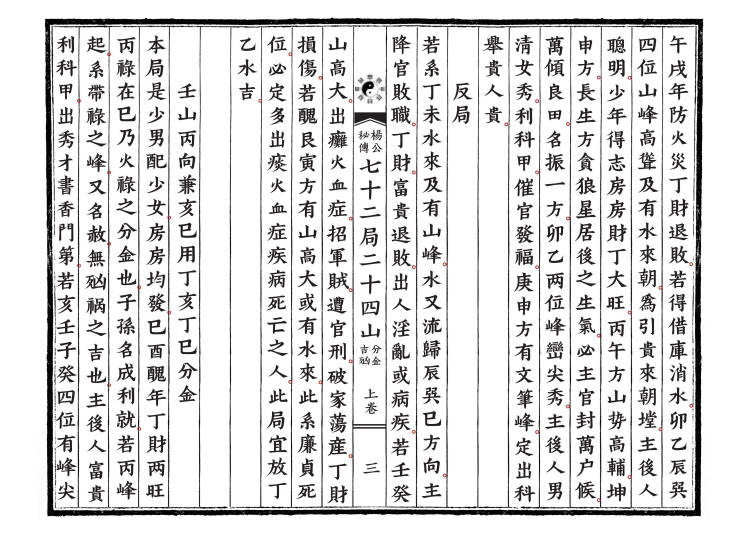 午戌年防火災丁財退敗若得借庫消水卯乙辰巽
四位山峰高聳及有水來朝為引貴來朝堂主後人
聰明少年得志房房財丁大旺丙午方山势高輔坤
申方長生方貪狼星居後之生氣必主官封萬户候
萬傾良田名振一方卯乙两位峰巒尖秀主後人男
清女秀利科甲催官發福庚申方有文筆峰定出科
舉貴人貴
反局
若系丁未水來及有山峰水又流歸辰巽巳方向主
降官敗職丁財富貴退敗出人淫亂或病疾若壬癸
楊公秘傳七十二局二十四山分金吉凶上卷 三
山高大出癱火血症招軍賊遭官刑破家蕩產丁財
損傷若醜艮寅方有山高大或有水來此系廉貞死
位必定多出痰火血症疾病死亡之人此局宜放丁
乙水吉
壬山丙向兼亥巳用丁亥丁巳分金
本局是少男配少女房房均發巳酉醜年丁財两旺
丙祿在巳乃火祿之分金也子孫名成利就若丙峰
起系帶祿之峰又名赦無凶禍之吉也主後人富貴
利科甲出秀才書香門第若亥壬子癸四位有峰尖